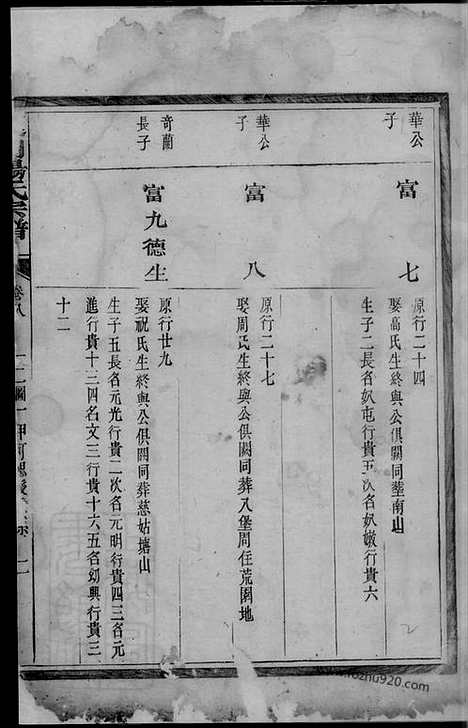 華公
子
富七
原行二十四
娶高氏生終與公俱闕同塟南山
生子二長名奴屯行貴五次名奴嫩行貴六
華公
子
富八
原行二十七
娶周氏生終與公俱闕同葬入堡門任荒園地
奇蘭
長子
富九德生
原行廿九
娶祝氏生終與公俱闕同葬慈姑塘山
生子五長名元光行貴二次名元明行貴四三名元
進行貴十三四名文三行貴十六五名幼興行貴三
十二
湯氏宗譜
卷八
2
zhu920.com